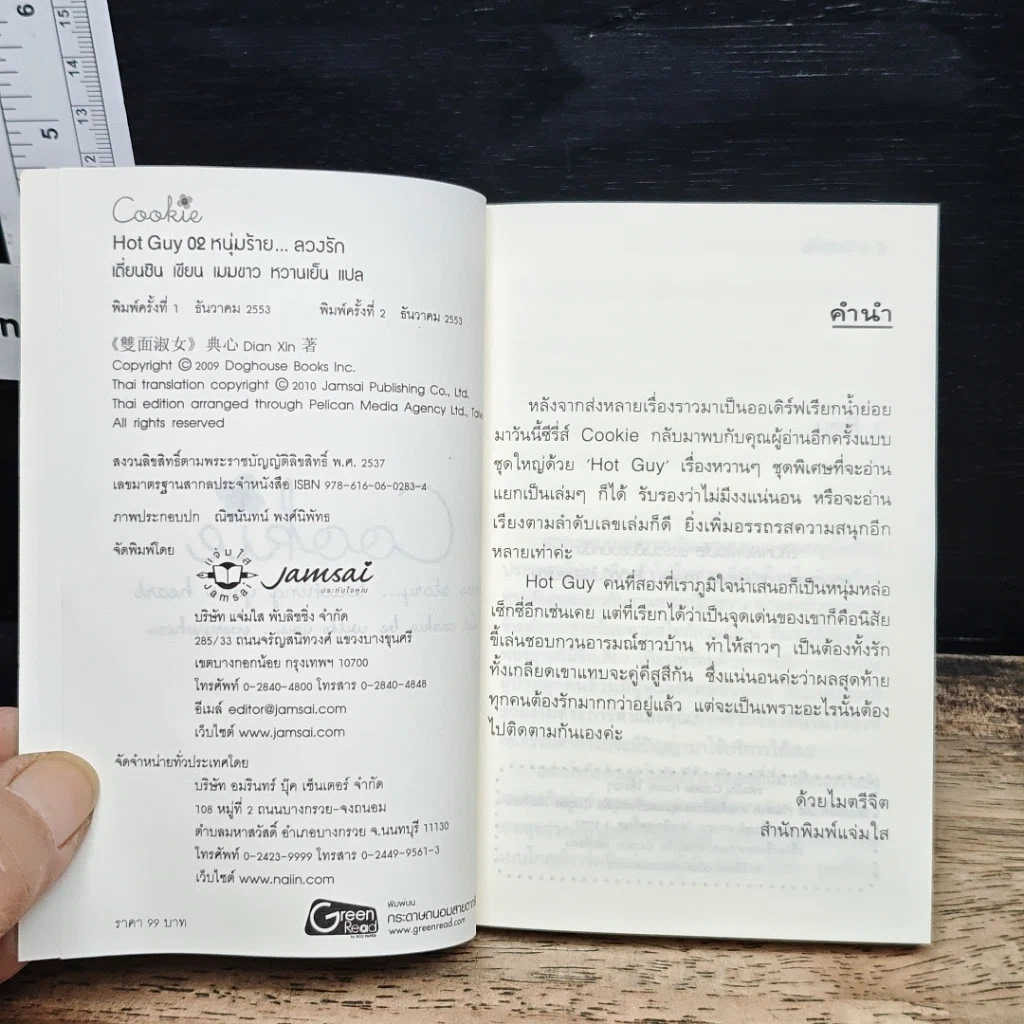 6
5
15
14
13
12
Cookie
Hot Guy 02 หนุ่มร้าย... ลวงรัก
เตี่ยนซิน เขียน เมมขาว หวานเย็น แปล
พิมพ์ครั้งที่ 1 ธันวาคม 2553 พิมพ์ครั้งที่ 2 ธันวาคม 2553
《雙面淑女》典心 Dian Xin 著
Copyright © 2009 Doghouse Books Inc.
Thai translation copyright © 2010 Jamsai Publishing Co., Ltd.
Thai edition arranged through Pelican Media Agency Ltd.,
All rights reserved
สงวนลิขสิทธิ์ตามพระราชบัญญัติลิขสิทธิ์ พ.ศ. 2537
เลขมาตรฐานสากลประจำหนังสือ ISBN 978-616-06-0283-4
ภาพประกอบปก ณิชนันทน์ พงศ์นิพัทธ
จัดพิมพ์โดย
แจ่มใส
Jamsai
Jamsai
ประทับใจคุณ
บริษัท แจ่มใส พับลิชชิ่ง จำกัด
285/33 ถนนจรัญสนิทวงศ์ แขวงบางขุนศรี
เขตบางกอกน้อย กรุงเทพฯ 10700
โทรศัพท์ 0-2840-4800 โทรสาร 0-2840-4848
อีเมล์ editor@jamsai.com
เว็บไซต์ www.jamsai.com
จัดจำหน่ายทั่วประเทศโดย
บริษัท อมรินทร์ บุ๊ค เซ็นเตอร์ จำกัด
108 หมู่ที่ 2 ถนนบางกรวย-จงถนอม
ตำบลมหาสวัสดิ์ อำเภอบางกรวย จ.นนทบุรี 11130
โทรศัพท์ 0-2423-9999 โทรสาร 0-2449-9561-3
เว็บไซต์ www.naiin.com
ราคา 99 บาท
Green Read
พิมพ์บน
กระดาษถนอมสายตา
www.greenread.com
คำนำ
หลังจากส่งหลายเรื่องราวมาเป็นออเดิร์ฟเรียกน้ำย่อย
มาวันนี้ซีรี่ส์ Cookie กลับมาพบกับคุณผู้อ่านอีกครั้งแบบ
ชุดใหญ่ด้วย 'Hot Guy' เรื่องหวานๆ ชุดพิเศษที่จะอ่าน
แยกเป็นเล่มๆ ก็ได้ รับรองว่าไม่มีงงแน่นอน หรือจะอ่าน
เรียงตามลำดับเลขเล่มก็ดี ยิ่งเพิ่มอรรถรสความสนุกอีก
หลายเท่าค่ะ
Hot Guy คนที่สองที่เราภูมิใจนำเสนอก็เป็นหนุ่มหล่อ
เซ็กซี่อีกเช่นเคย แต่ที่เรียกได้ว่าเป็นจุดเด่นของเขาก็คือนิสัย
ขี้เล่นชอบกวนอารมณ์ชาวบ้าน ทำให้สาวๆ เป็นต้องทั้งรัก
ทั้งเกลียดเขาแทบจะคู่คี่สูสีกัน ซึ่งแน่นอนค่ะว่าผลสุดท้าย
ทุกคนต้องรักมากกว่าอยู่แล้ว แต่จะเป็นเพราะอะไรนั้นต้อง
ไปติดตามกันเองค่ะ
ด้วยไมตรีจิต
สำนักพิมพ์แจ่มใส